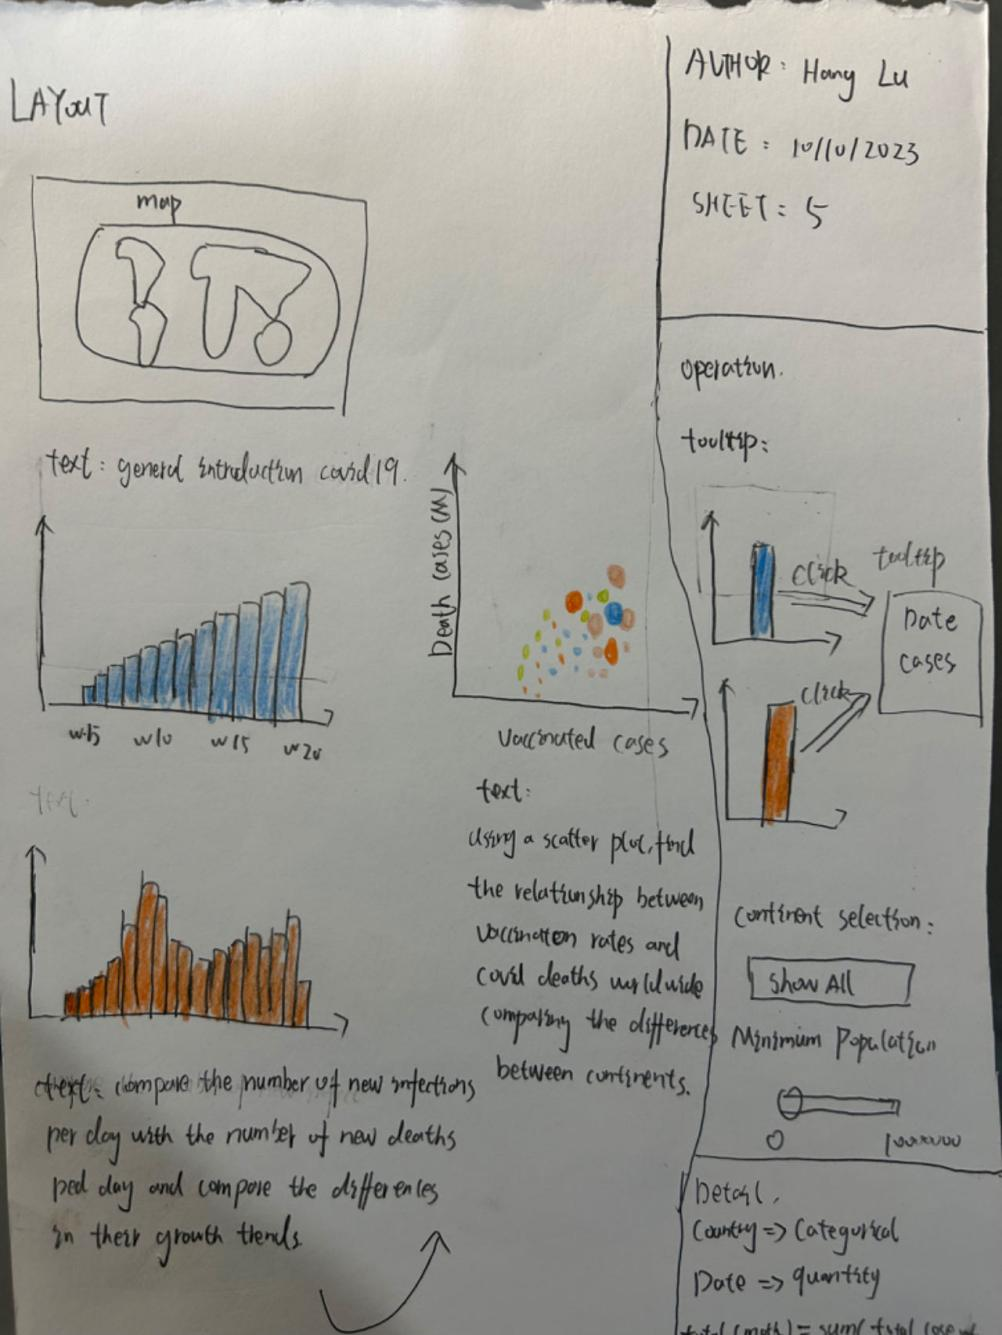 LAYOUT
map
text: general introduction covid 19.
w5
w10
w15
w20
text:
text: compare the number of new infections
per day with the number of new deaths
ped day and compare the differences
in their growth trends.
Death cases (M)
Vaccinated cases
text:
Using a scatter plot, find
the relationship between
vaccination rates and
covid deaths worldwide
comparing the differences
between continents.
AUTHOR: Hang Lu
DATE: 10/10/2023
SHEET: 5
operation.
tooltip:
click
tooltip
Date
cases
click
continent selection:
Show All
Minimum Population
0
Detail.
Country => Categorical
Date => quantity
= sum( total case